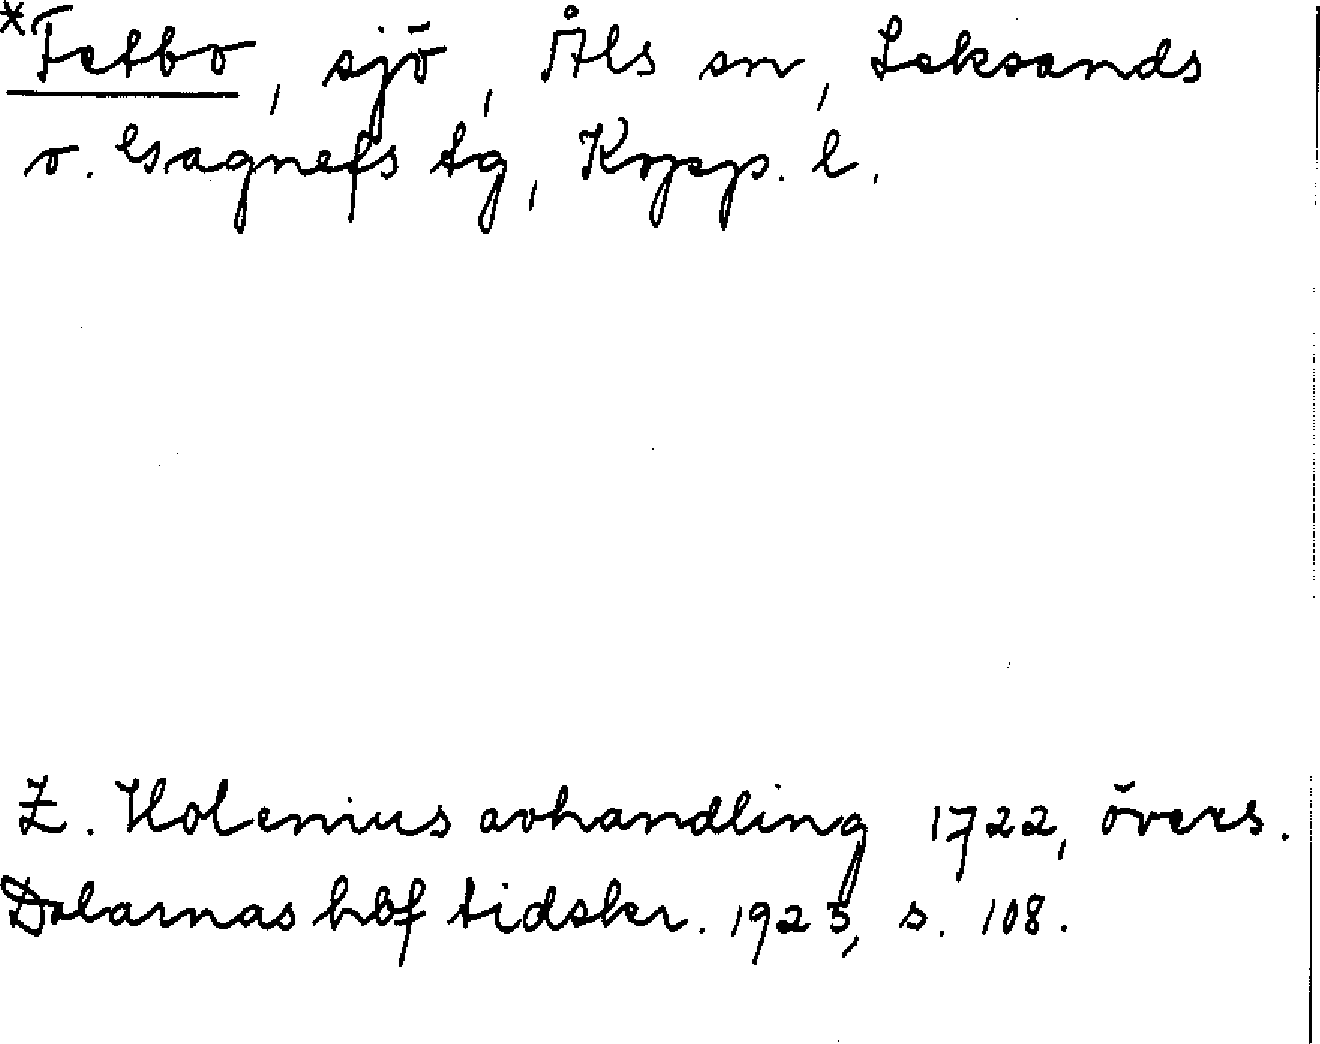 *Fetbo, sjö, Åls sn, Leksands
o. Gagnefs tg, Kopp. l.
Z. Holenius avhandling 1722, övers.
Dalarnas hbf tidskr. 1923, s. 108.